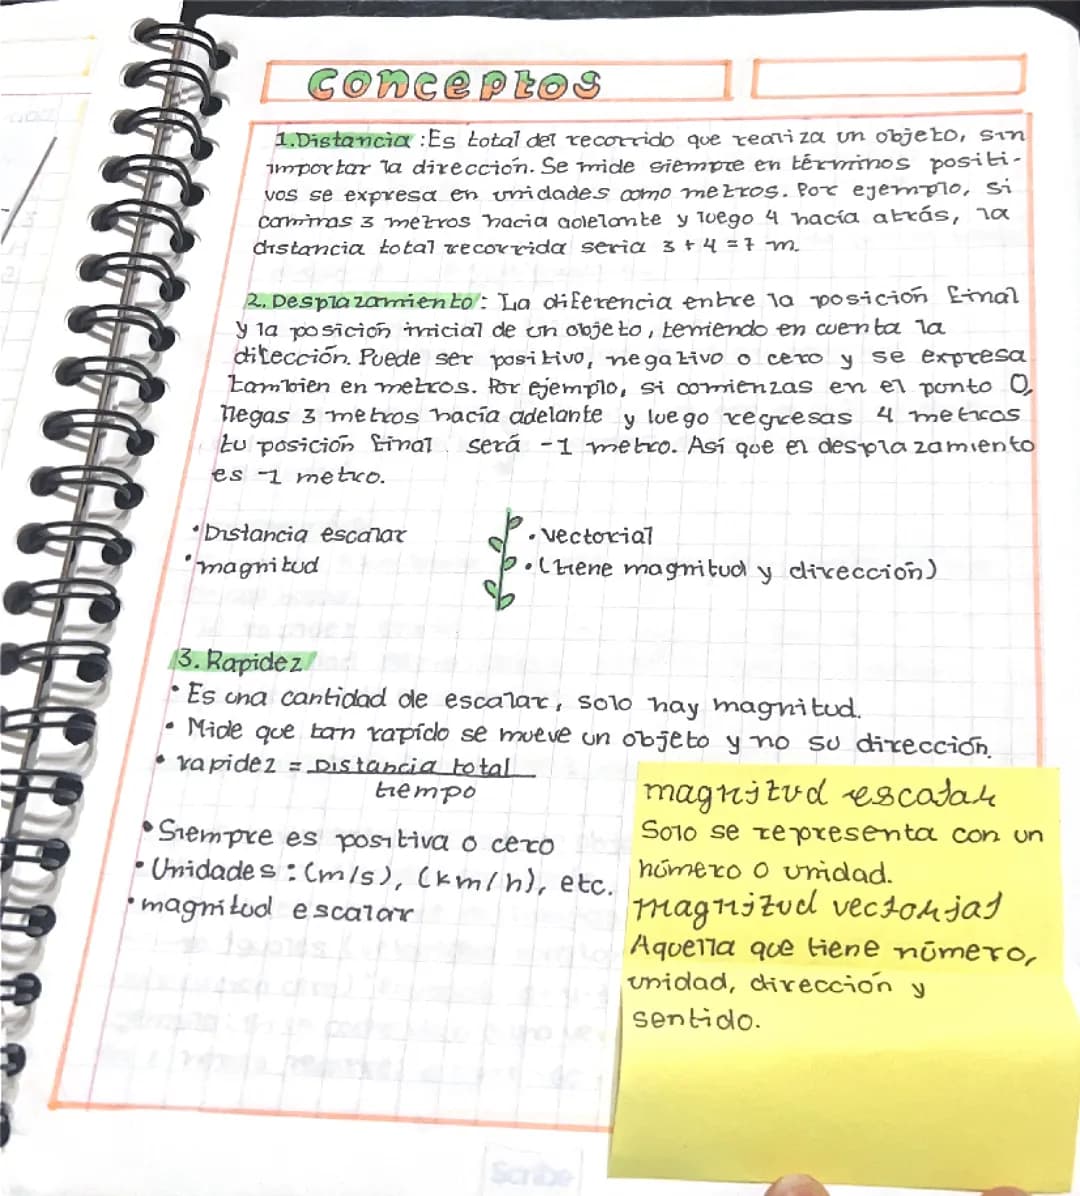 conceptos
1. Distancia : Es total del recorrido que realiza un objeto, sin
importar la dirección. Se mide siempre en términos positi-
vos se expresa en unidades como metros. Por ejemplo, si
caminas 3 metros hacia adelante y luego 4 hacía atrás, la
distancia total recorrida seria 3 + 4 = 7 m.
2. Desplazamiento : La diferencia entre la posición final
y la posición inicial de un objeto, teniendo en cuenta la
dirección. Puede ser positivo, negativo o cero y se expresa
tambien en metros. Por ejemplo, si comienzas en el punto 0,
llegas 3 metros hacía adelante y luego regresas 4 metros
tu posición final . será -1 metro. Así que el desplazamiento
es -1 metro.
• Distancia escalar
• magnitud
• vectorial
• (tiene magnitud y dirección)
3. Rapidez
• Es una cantidad de escalar, solo hay magnitud.
• Mide que tan rapído se mueve un objeto y no su dirección.
• rapidez = Distancia total
tiempo
• Siempre es positiva o cero
• Unidades : (m/s), (km/h), etc.
• magnitud escalar
magnitud escalar
Solo se representa con un
número o unidad.
magnitud vectorial
Aquella que tiene número,
unidad, dirección y
sentido.
Scribe